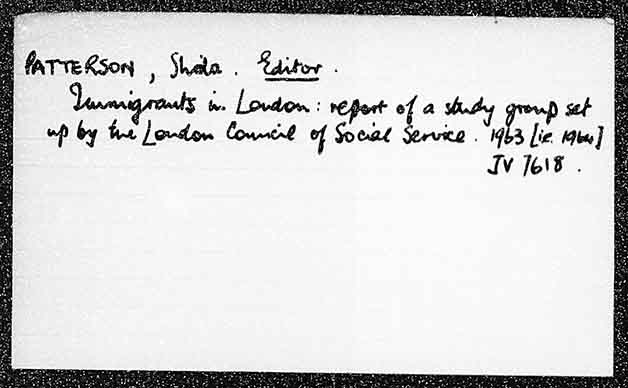 PATTERSON, Sheila. Editor.
Immigrants in London: report of a study group set
up by the London Council of Social Service. 1963 [ie. 1964]
JV 7618.